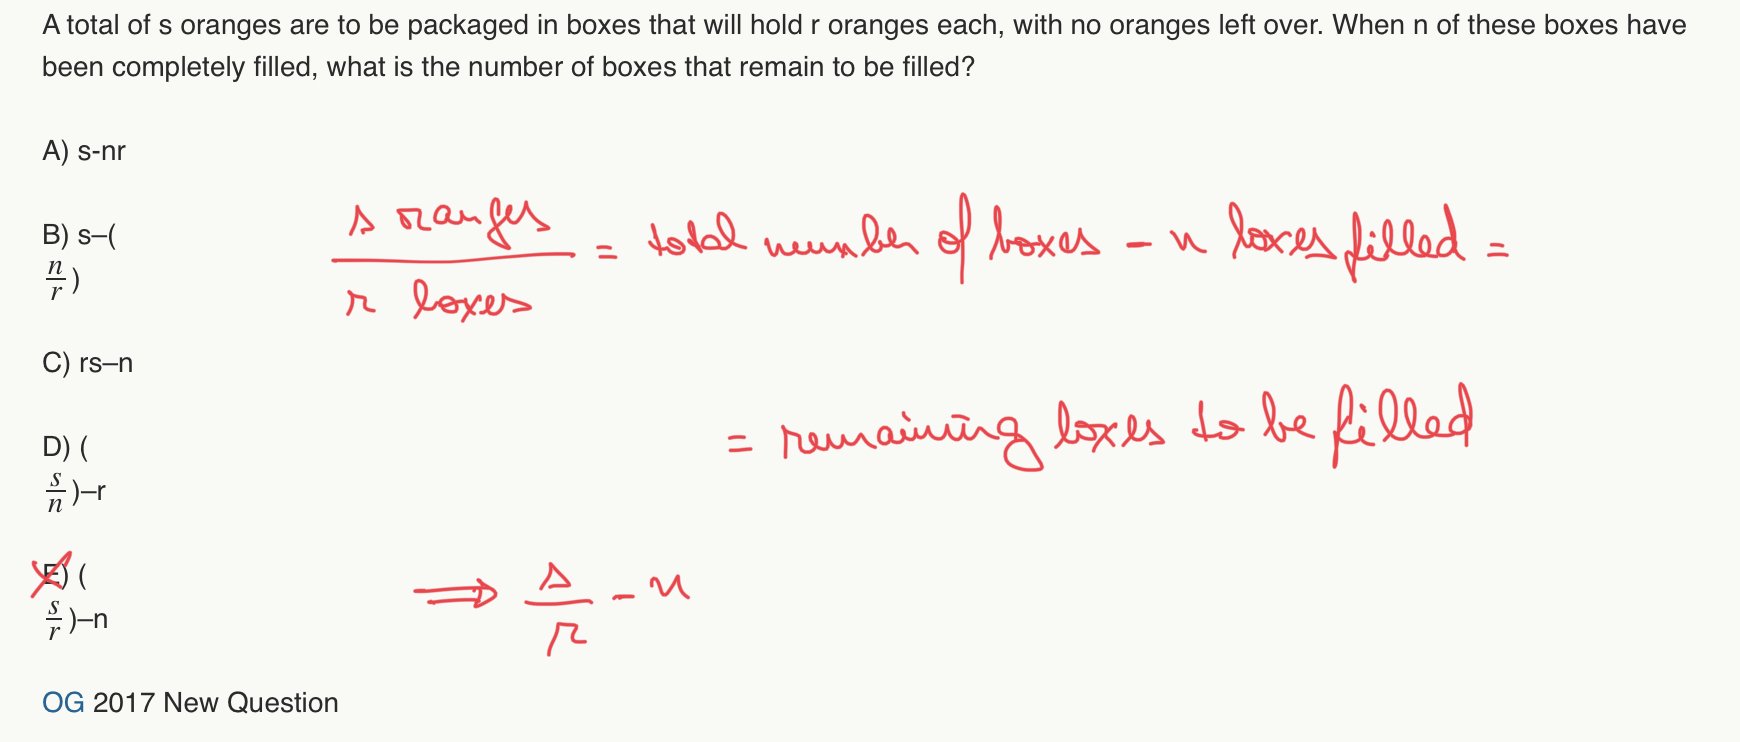 A total of s oranges are to be packaged in boxes that will hold r oranges each, with no oranges left over. When n of these boxes have
been completely filled, what is the number of boxes that remain to be filled?
A) s-nr
B) s–(
n
r )
C) rs–n
D) (
s
n )–r
E) (
s
r )–n
s oranges
r boxes
= total number of boxes - n boxes filled =
= remaining boxes to be filled
⟹ s
r
- n
OG 2017 New Question